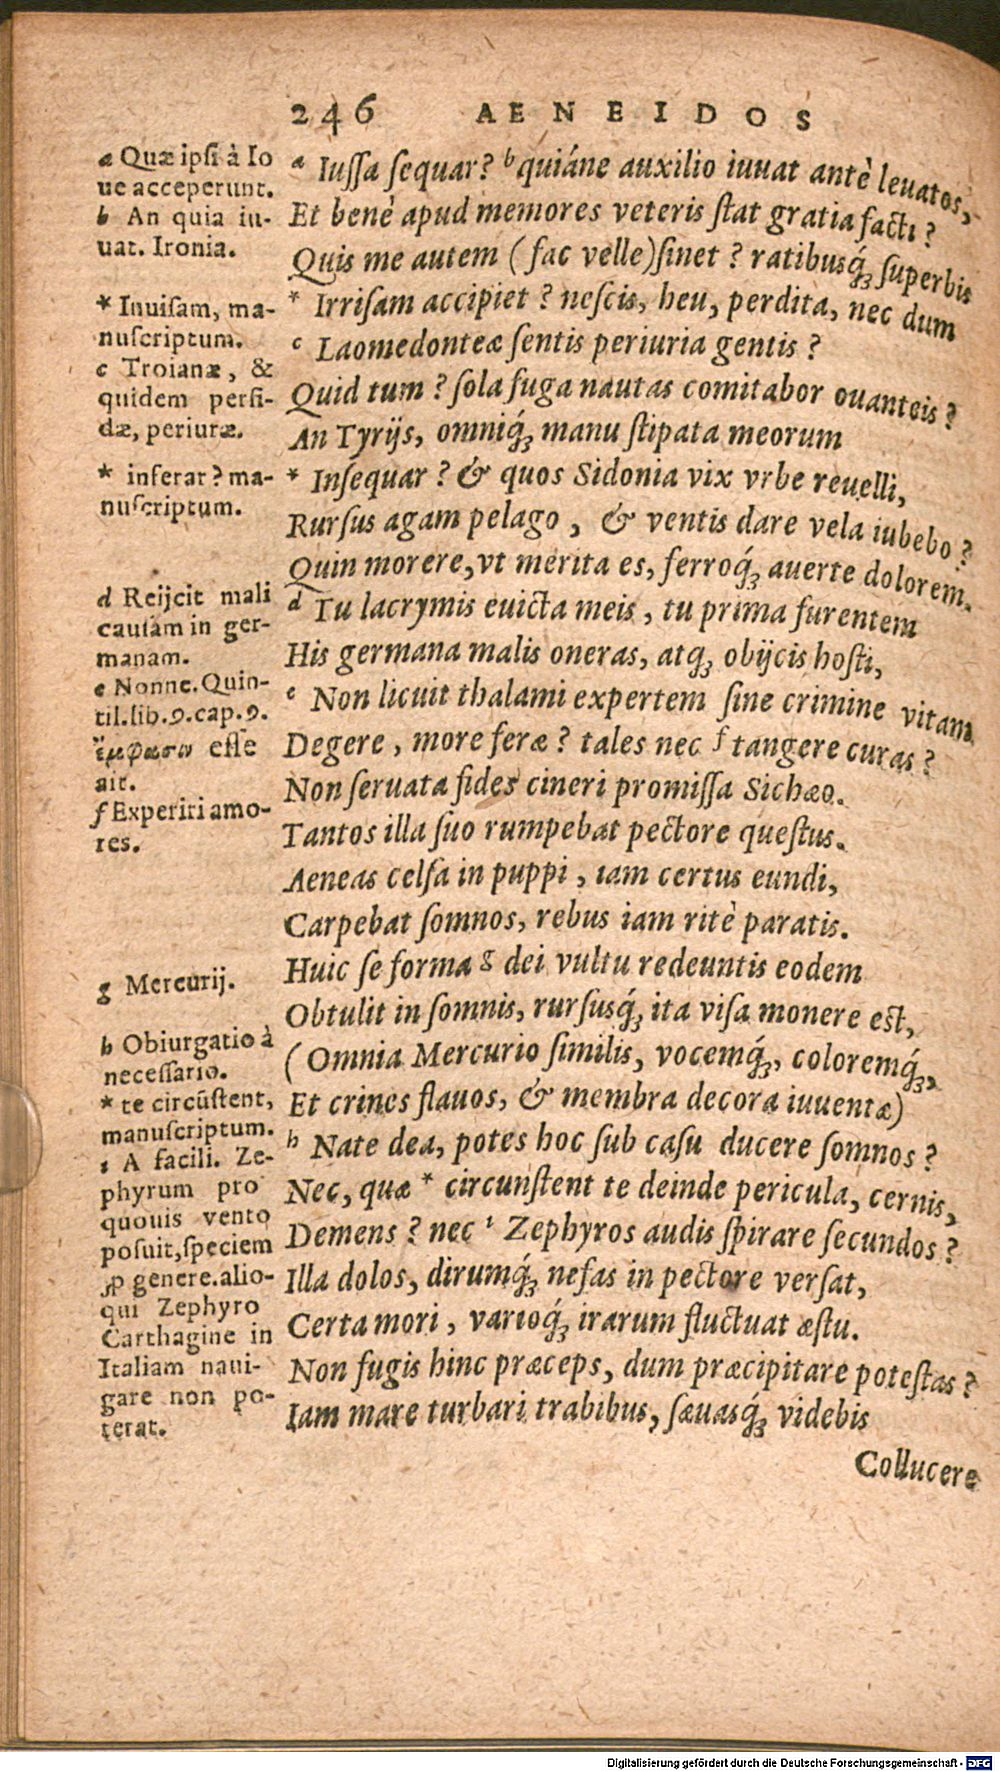 246 AENEIDOS
a Quæ ipsi à Io
ue acceperunt.
b An quia iu-
uat. Ironia.
* Inuisam, ma-
nuscriptum.
c Troianæ, &
quidem persi-
dæ, periuræ.
* inferar? ma-
nuscriptum.
d Reijcit mali
causam in ger-
manam.
e Nonne. Quin-
til. lib. 9. cap. 9.
ἔμφασιν esse
ait.
f Experiri amo-
res.
g Mercurij.
h Obiurgatio à
necessario.
* te circūstent,
manuscriptum.
i A facili. Ze-
phyrum pro
quouis vento
posuit, speciem
ꝓ genere. alio-
qui Zephyro
Carthagine in
Italiam naui-
gare non po-
terat.
a Iussa sequar? b quiáne auxilio iuuat antè leuatos,
Et benè apud memores veteris stat gratia facti?
Quis me autem (fac velle) sinet? ratibusq́ꝫ superbis
* Irrisam accipiet? nescis, heu, perdita, nec dum
c Laomedonteæ sentis periuria gentis?
Quid tum? sola fuga nautas comitabor ouanteis?
An Tyrijs, omniq́ꝫ manu stipata meorum
* Insequar? & quos Sidonia vix vrbe reuelli,
Rursus agam pelago, & ventis dare vela iubebo?
Quin morere, vt merita es, ferroq́ꝫ auerte dolorem.
d Tu lacrymis euicta meis, tu prima furentem
His germana malis oneras, atqꝫ obijcis hosti,
e Non licuit thalami expertem sine crimine vitam
Degere, more feræ? tales nec f tangere curas?
Non seruata fides cineri promissa Sichæo.
Tantos illa suo rumpebat pectore questus.
Aeneas celsa in puppi, iam certus eundi,
Carpebat somnos, rebus iam ritè paratis.
Huic se forma g dei vultu redeuntis eodem
Obtulit in somnis, rursusq́ꝫ ita visa monere est,
(Omnia Mercurio similis, vocemq́ꝫ, coloremq́ꝫ,
Et crines flauos, & membra decora iuuentæ)
h Nate dea, potes hoc sub casu ducere somnos?
Nec, quæ * circunstent te deinde pericula, cernis,
Demens? nec i Zephyros audis spirare secundos?
Illa dolos, dirumq́ꝫ nefas in pectore versat,
Certa mori, varioq́ꝫ irarum fluctuat æstu.
Non fugis hinc præceps, dum præcipitare potestas?
Iam mare turbari trabibus, sæuasq́ꝫ videbis
Collucere
Digitalisierung gefördert durch die Deutsche Forschungsgemeinschaft - DFG